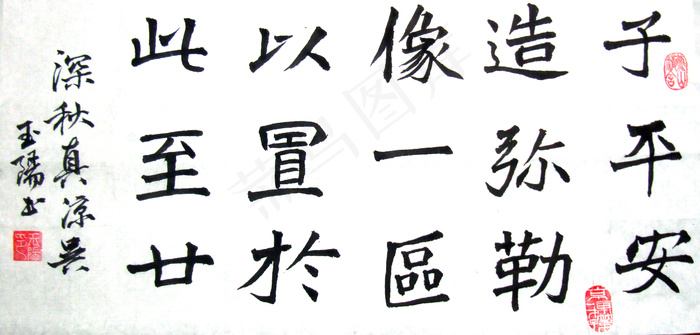 子平安
造弥勒
像一區
以置於
此至廿
深秋真凉吴
玉陽书